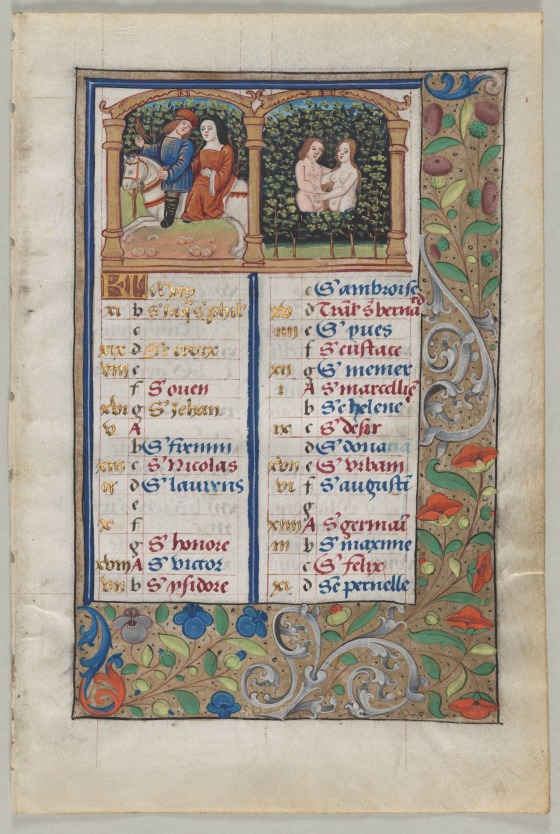 KL May
xi b S' Iaq' S' phile
c
xix d Ste croix
viii e
f S' ouen
xvi g S' Iehan
v A
b S' firmin
xiii c S' Nicolas
ii d S' laurens
e
x f
g S' honore
xviii A S' victor
vii b S' ysidore
c S' ambroise
xv d Tral' S' bernard
iiii e S' yues
f S' eustace
xii g S' memer
i A S' marcellie
b Se helene
ix c S' desir
d S' donacia
xvii e S' vrbain
vi f S' augusti
g
xiiii A S' germai
iii b S' maxime
c S' felix
xi d Se pernelle